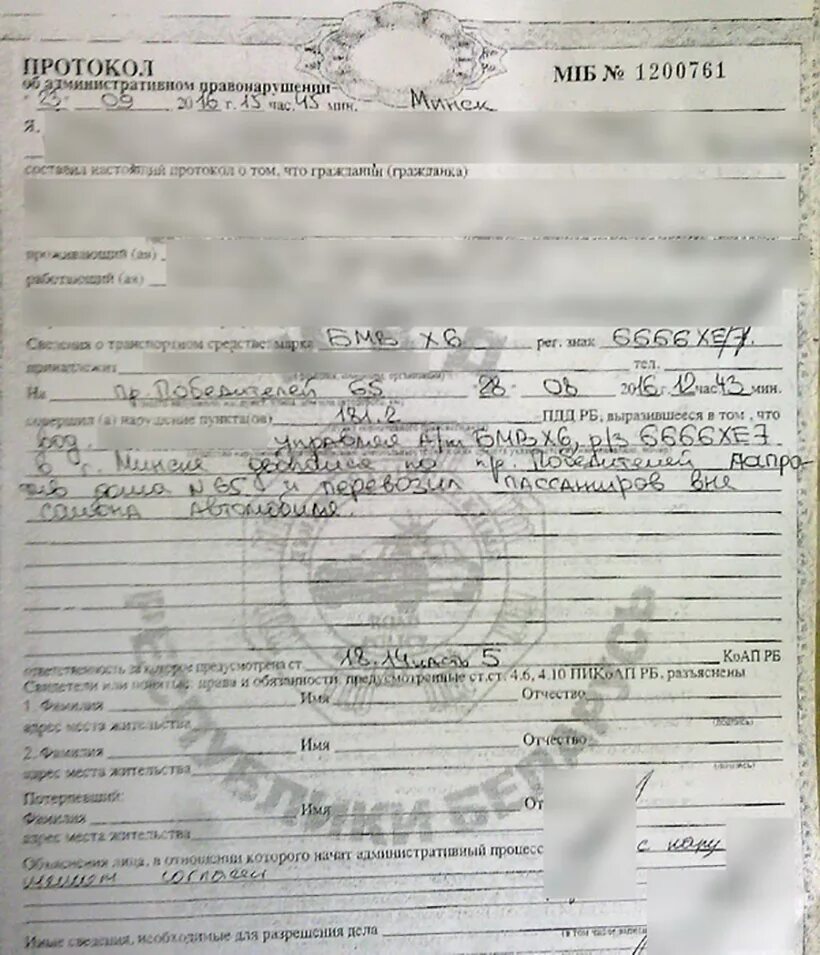 ПРОТОКОЛ
МІБ № 1200761
об административном правонарушении
23 09 2016 г. 15 час. 45 мин. Минск
Я,
составил настоящий протокол о том, что гражданин (гражданка)
проживающий (ая)
работающий (ая)
Сведения о транспортном средстве: марка БМВ Х6 рег. знак 6666ХЕ/7
принадлежит тел.
На пр. Победителей 65 28 08 2016 г. 12 час 43 мин.
совершил (а) нарушение пункта(ов) 181.2 ПДД РБ, выразившееся в том, что
вод. управляя а/м БМВ Х6, р/з 6666ХЕ7
в г. Минске двигался по пр. Победителей напро
тив дома N65 и перевозил пассажиров вне
салона автомобиля.
ответственность за которое предусмотрена ст. 18.14 часть 5 КоАП РБ
Свидетели или понятые: права и обязанности, предусмотренные ст.ст. 4.6, 4.10 ПИКоАП РБ, разъяснены
1. Фамилия Имя Отчество
адрес места жительства (подпись)
2. Фамилия Имя Отчество
адрес места жительства (подпись)
Потерпевший:
Фамилия Имя От
адрес места жительства
Объяснения лица, в отношении которого начат административный процесс с нару
шением согласен
Иные сведения, необходимые для разрешения дела
РЕСПУБЛИКИ БЕЛАРУСЬ